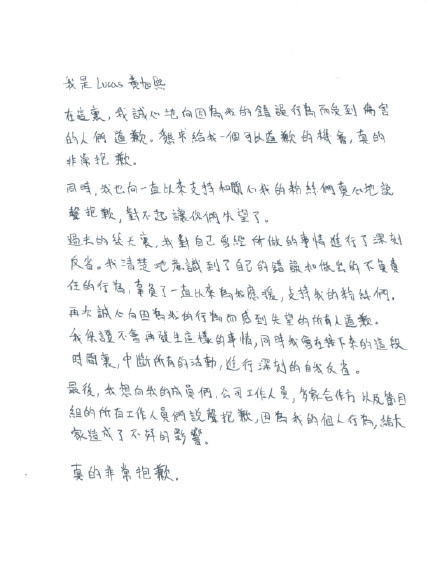 我是 Lucas 黃旭熙
在這裏，我誠心地向因為我的錯誤行為而受到傷害
的人們道歉。懇求給我一個可以道歉的機會，真的
非常抱歉。
同時，我也向一直以來支持和關心我的粉絲們真心地說
聲抱歉，對不起讓你們失望了。
過去的幾天裏，我對自己曾經所做的事情進行了深刻
反省。我清楚地意識到了自己的錯誤和做出的不負責
任的行為，辜負了一直以來為我應援，支持我的粉絲們。
再次誠心向因為我的行為而感到失望的所有人道歉。
我保證不會再發生這樣的事情，同時我會在接下來的這段
時間裏，中斷所有的活動，進行深刻的自我反省。
最後，我想向我的成員們，公司工作人員，各家合作方以及節目
組的所有工作人員們說聲抱歉，因為我的個人行為，給大
家造成了不好的影響。
真的非常抱歉。